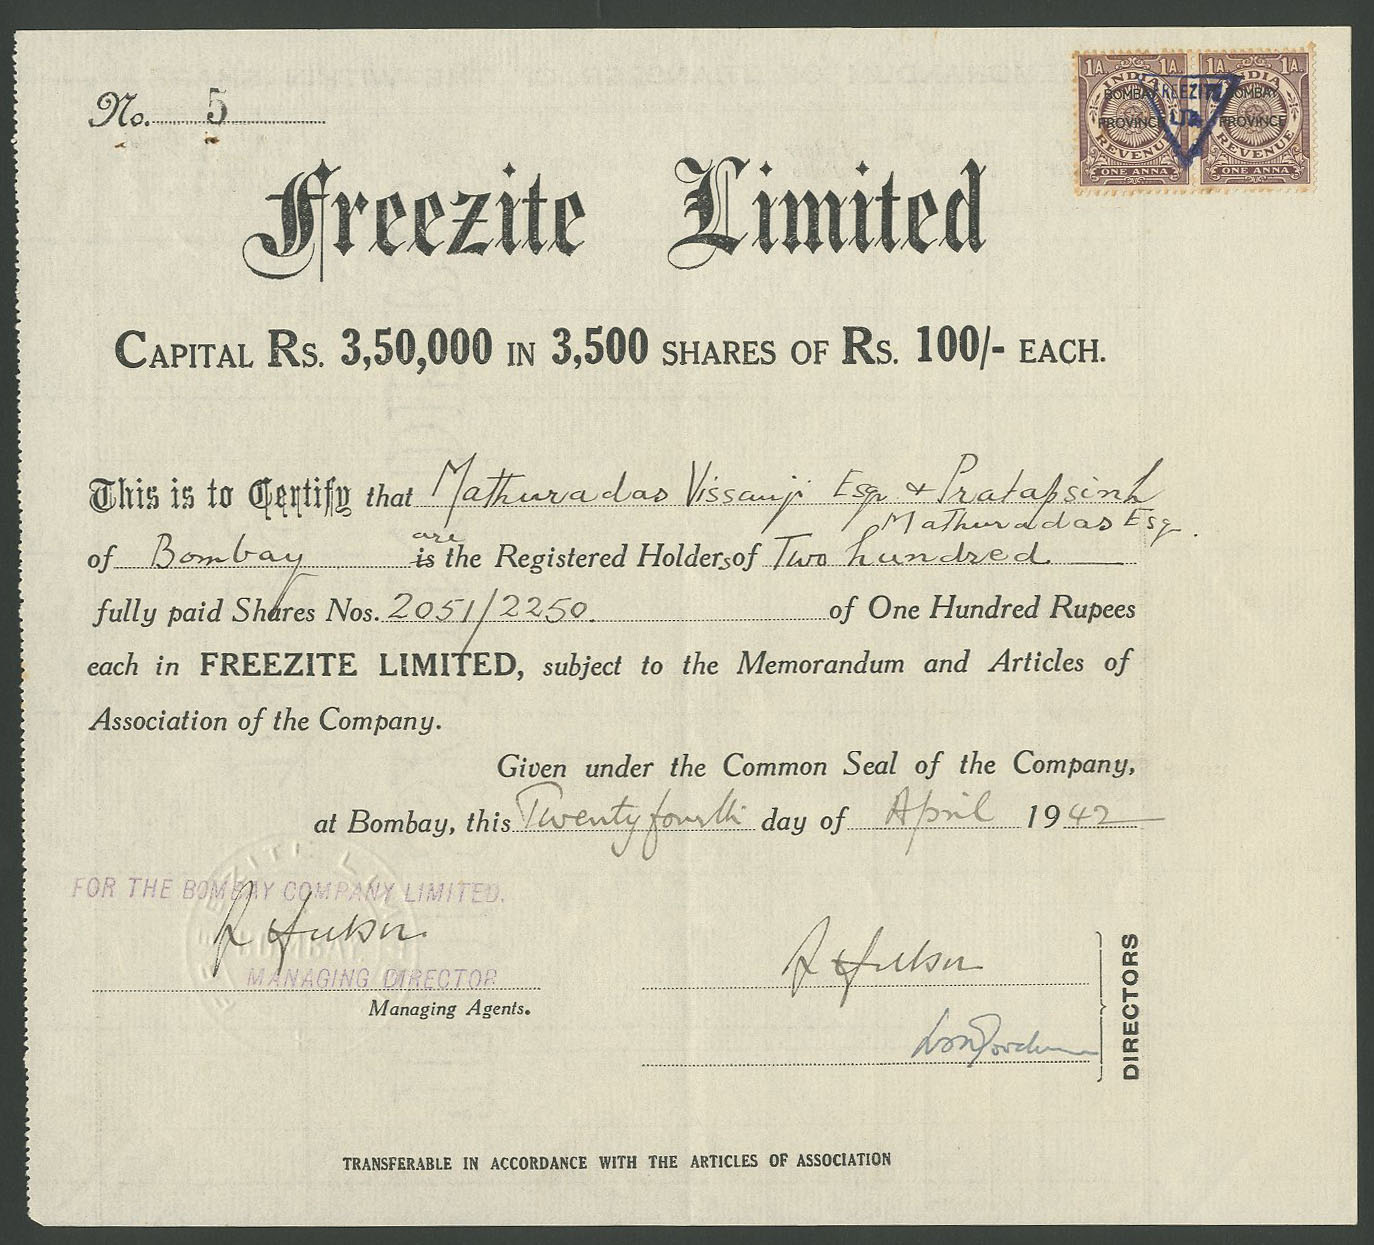 No. 5
1A. 1A. 1A. 1A.
INDIA INDIA
BOMBAY FREEZITE BOMBAY
PROVINCE LTD. PROVINCE
REVENUE REVENUE
ONE ANNA ONE ANNA
Freezite Limited
CAPITAL RS. 3,50,000 IN 3,500 SHARES OF RS. 100/- EACH.
This is to Certify that Mathuradas Vissanji Esqr & Pratapsinh
Mathuradas Esq.
of Bombay is are the Registered Holders of Two hundred
fully paid Shares Nos. 2051/2250. of One Hundred Rupees
each in FREEZITE LIMITED, subject to the Memorandum and Articles of
Association of the Company.
Given under the Common Seal of the Company,
at Bombay, this Twenty fourth day of April 1942
FOR THE BOMBAY COMPANY LIMITED.
MANAGING DIRECTOR
Managing Agents.
DIRECTORS
FREEZITE LIMITED
BOMBAY
TRANSFERABLE IN ACCORDANCE WITH THE ARTICLES OF ASSOCIATION